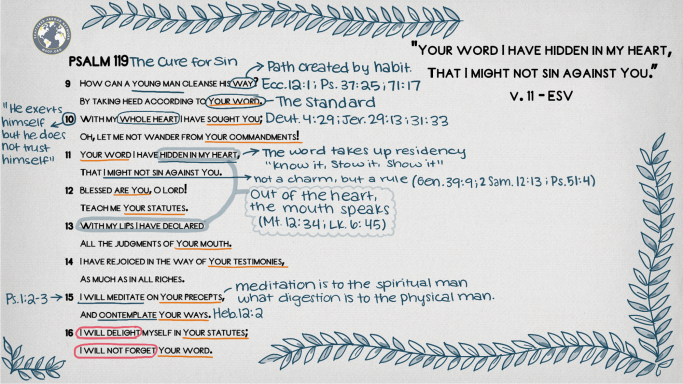 PSALM 119 The Cure for Sin
9 HOW CAN A YOUNG MAN CLEANSE HIS WAY?
Path created by habit.
Ecc.12:1; Ps.37:25; 71:17
BY TAKING HEED ACCORDING TO YOUR WORD. - The Standard
10 WITH MY WHOLE HEART I HAVE SOUGHT YOU; Deut.4:29; Jer.29:13; 31:33
"He exerts
himself
but he does
not trust
himself"
OH, LET ME NOT WANDER FROM YOUR COMMANDMENTS!
11 YOUR WORD I HAVE HIDDEN IN MY HEART,
The word takes up residency
"Know it, Stow it, Show it"
THAT I MIGHT NOT SIN AGAINST YOU.
not a charm, but a rule (Gen.39:9; 2 Sam.12:13; Ps.51:4)
12 BLESSED ARE YOU, O LORD!
TEACH ME YOUR STATUTES.
Out of the heart,
the mouth speaks
(Mt.12:34; Lk.6:45)
13 WITH MY LIPS I HAVE DECLARED
ALL THE JUDGMENTS OF YOUR MOUTH.
14 I HAVE REJOICED IN THE WAY OF YOUR TESTIMONIES,
AS MUCH AS IN ALL RICHES.
Ps.1:2-3
15 I WILL MEDITATE ON YOUR PRECEPTS,
meditation is to the spiritual man
what digestion is to the physical man.
AND CONTEMPLATE YOUR WAYS. Heb.12:2
16 I WILL DELIGHT MYSELF IN YOUR STATUTES;
I WILL NOT FORGET YOUR WORD.
"YOUR WORD I HAVE HIDDEN IN MY HEART,
THAT I MIGHT NOT SIN AGAINST YOU."
V. 11 - ESV